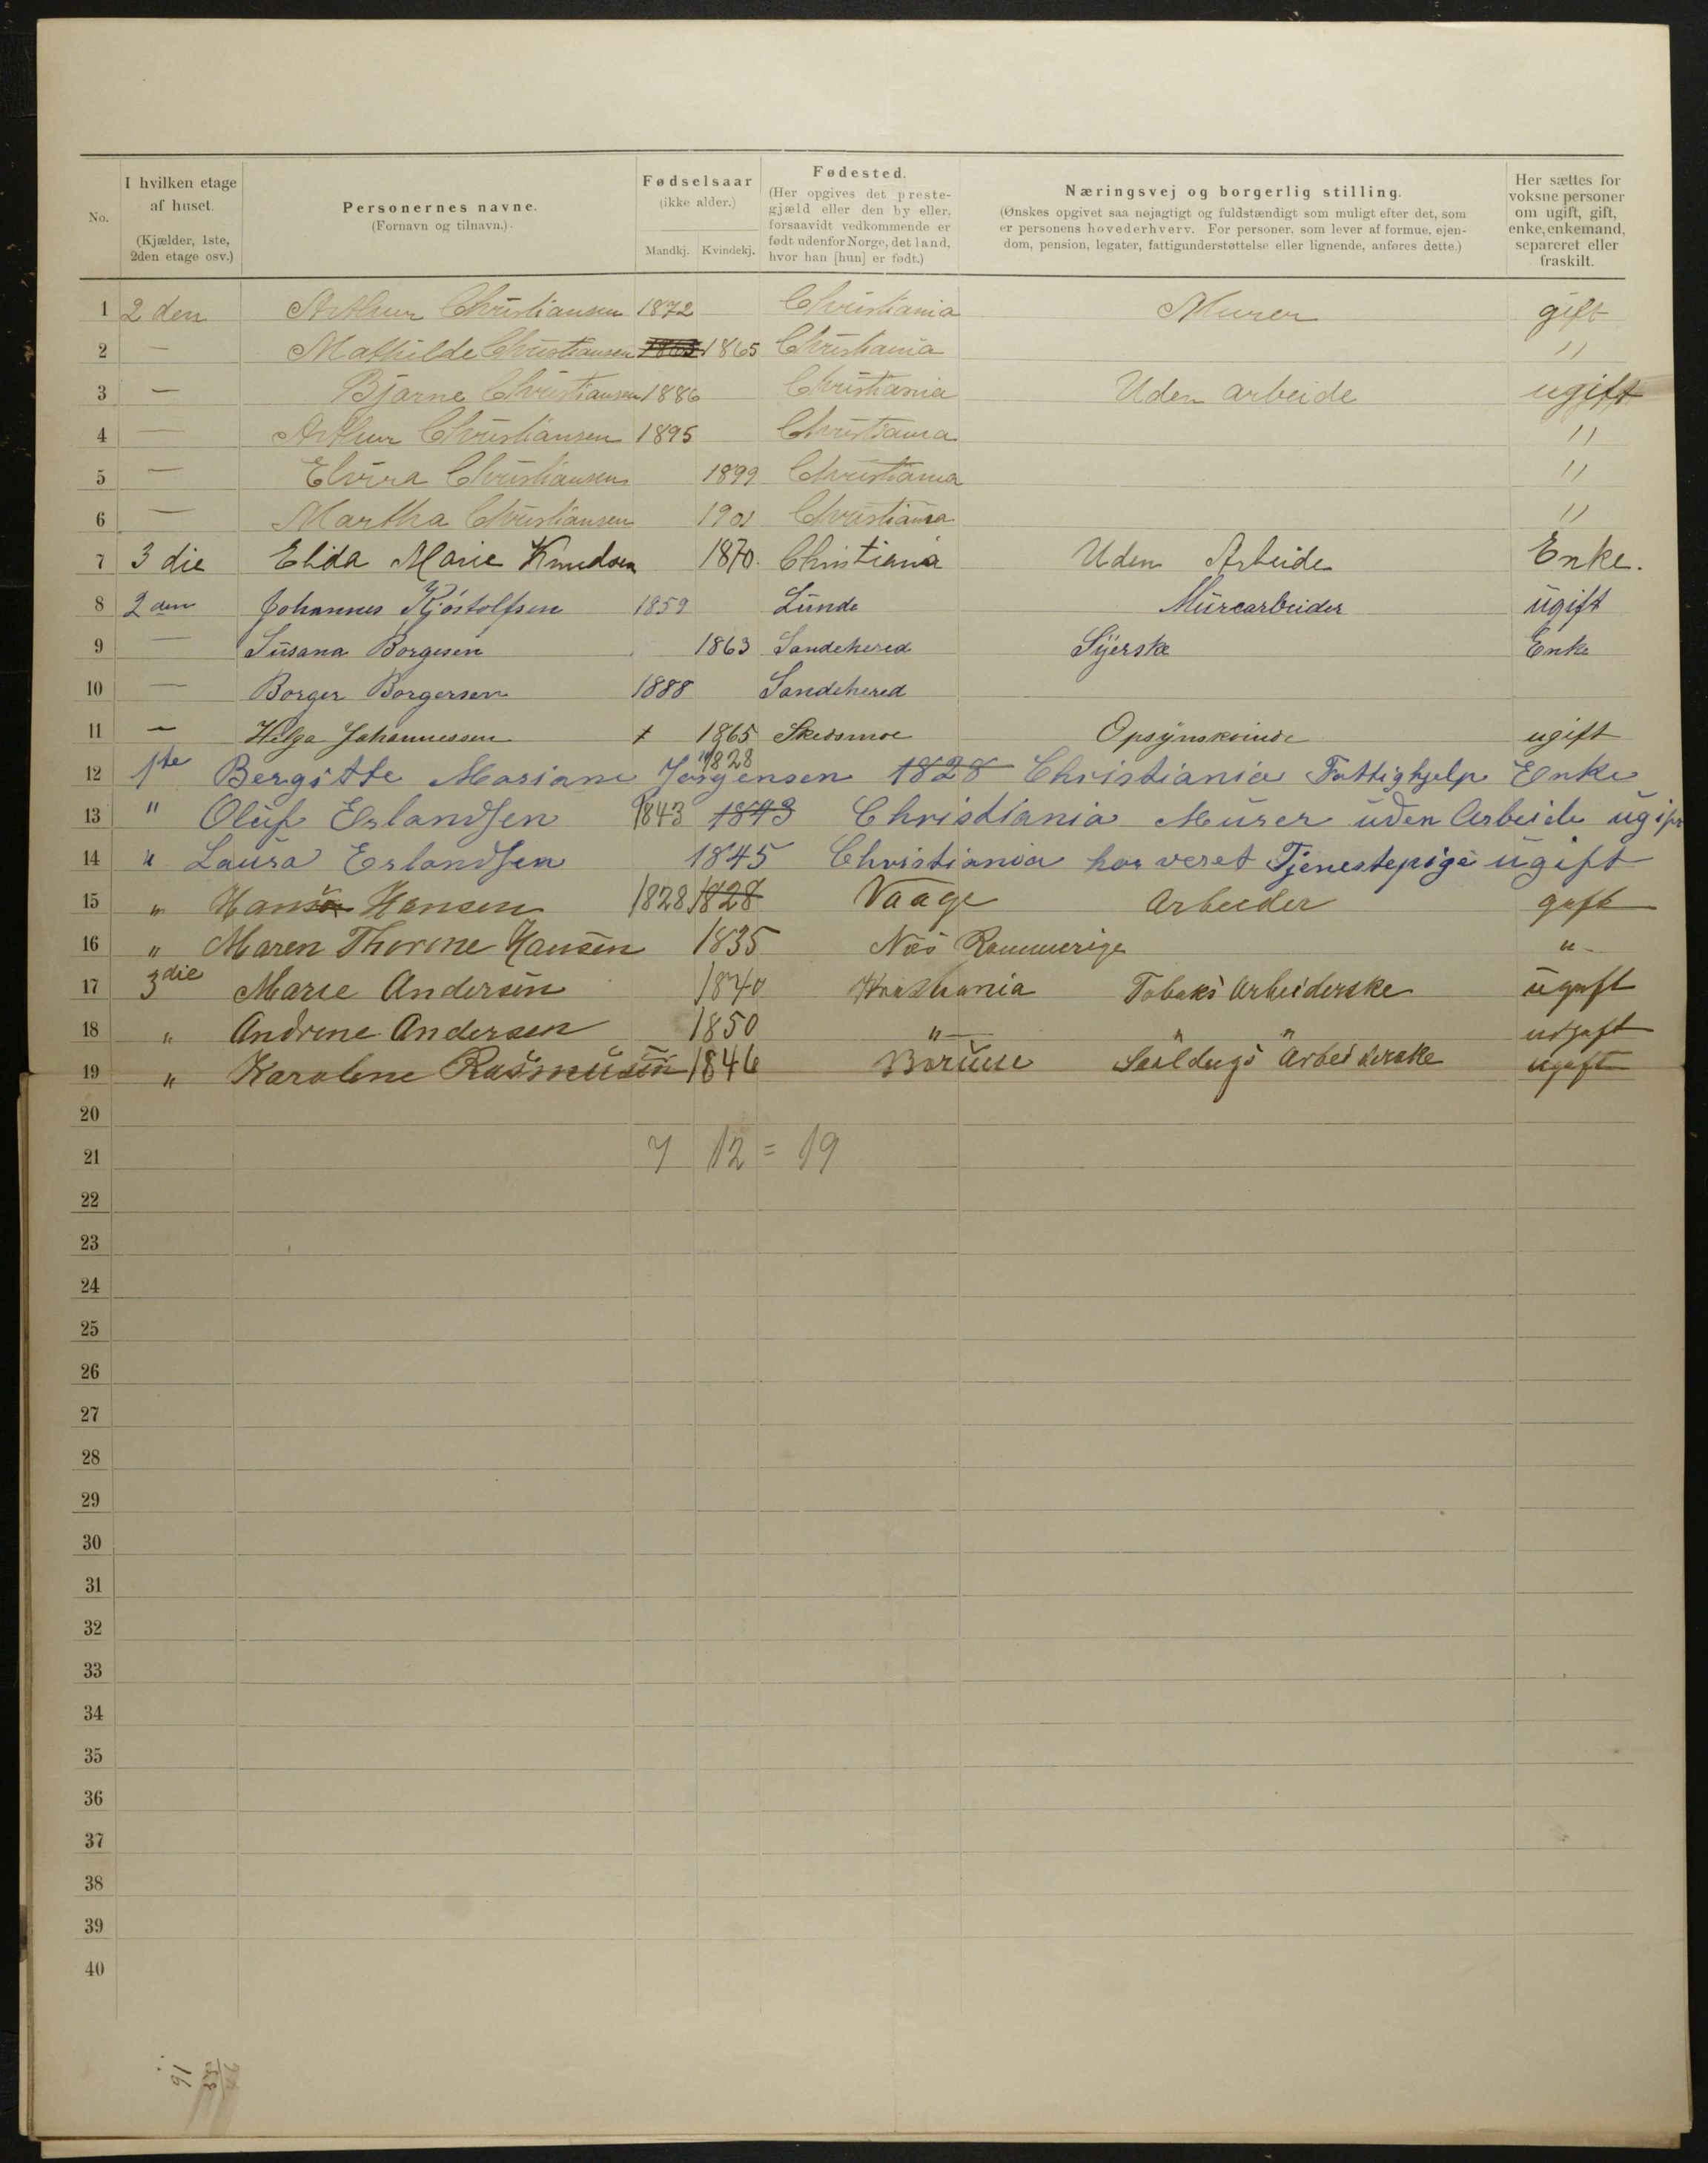 No.
I hvilken etage af huset.
(Kjælder, 1ste, 2den etage osv.)
Personernes navne.
(Fornavn og tilnavn.)
Fødselsaar
(ikke alder.)
Mandkj. Kvindekj.
Fødested.
(Her opgives det preste-
gjæld eller den by eller,
forsaavidt vedkommende er
født udenfor Norge, det land,
hvor han [hun] er født.)
Næringsvej og borgerlig stilling.
(Ønskes opgivet saa nøjagtigt og fuldstændigt som muligt efter det, som
er personens hovederhverv. For personer, som lever af formue, ejen-
dom, pension, legater, fattigunderstøttelse eller lignende, anføres dette.)
Her sættes for
voksne personer
om ugift, gift,
enke, enkemand,
separeret eller
fraskilt.
1 2 den Arthur Christiansen 1872 Christiania Murer gift
2 — Mathilde Christiansen 1865 1865 Christiania "
3 — Bjarne Christiansen 1886 Christiania Uden arbeide ugift
4 — Arthur Christiansen 1895 Christiania "
5 — Elvira Christiansen 1899 Christiania "
6 — Martha Christiansen 1901 Christiania "
7 3 die Elida Marie Knudsen 1870. Christiania Uden Arbeide Enke.
8 2 den Johannes Kjøstolfsen 1859 Lunde Murearbeider ugift
9 — Susana Borgesen 1863 Sandehered Syerske Enke
10 — Borger Borgersen 1888 Sandehered
11 — Helga Johannessen 1865 Skedsmoe Opsynskvinde ugift
1828
12 1ste Bergitte Mariane Jørgensen 1828 Christiania Fattighjelp Enke
13 " Oluf Erlandsen 1843 1843 Christiania Murer uden Arbeide ugift
14 " Laura Erlandsen 1845 Christiania har veret Tjenestepige ugift
15 " Hans Hansen 1828 1828 Vaage Arbeider gift
16 " Maren Thorine Hansen 1835 Næs Rommerige "
17 3 die Marie Andersen 1840 Kristiania Tobaks Arbeiderske ugift
18 " Andrine Andersen 1850 " " " ugift
19 " Karoline Rasmusen 1846 Arbeiderske ugift
20
21 7 12 = 19
22
23
24
25
26
27
28
29
30
31
32
33
34
35
36
37
38
39
40